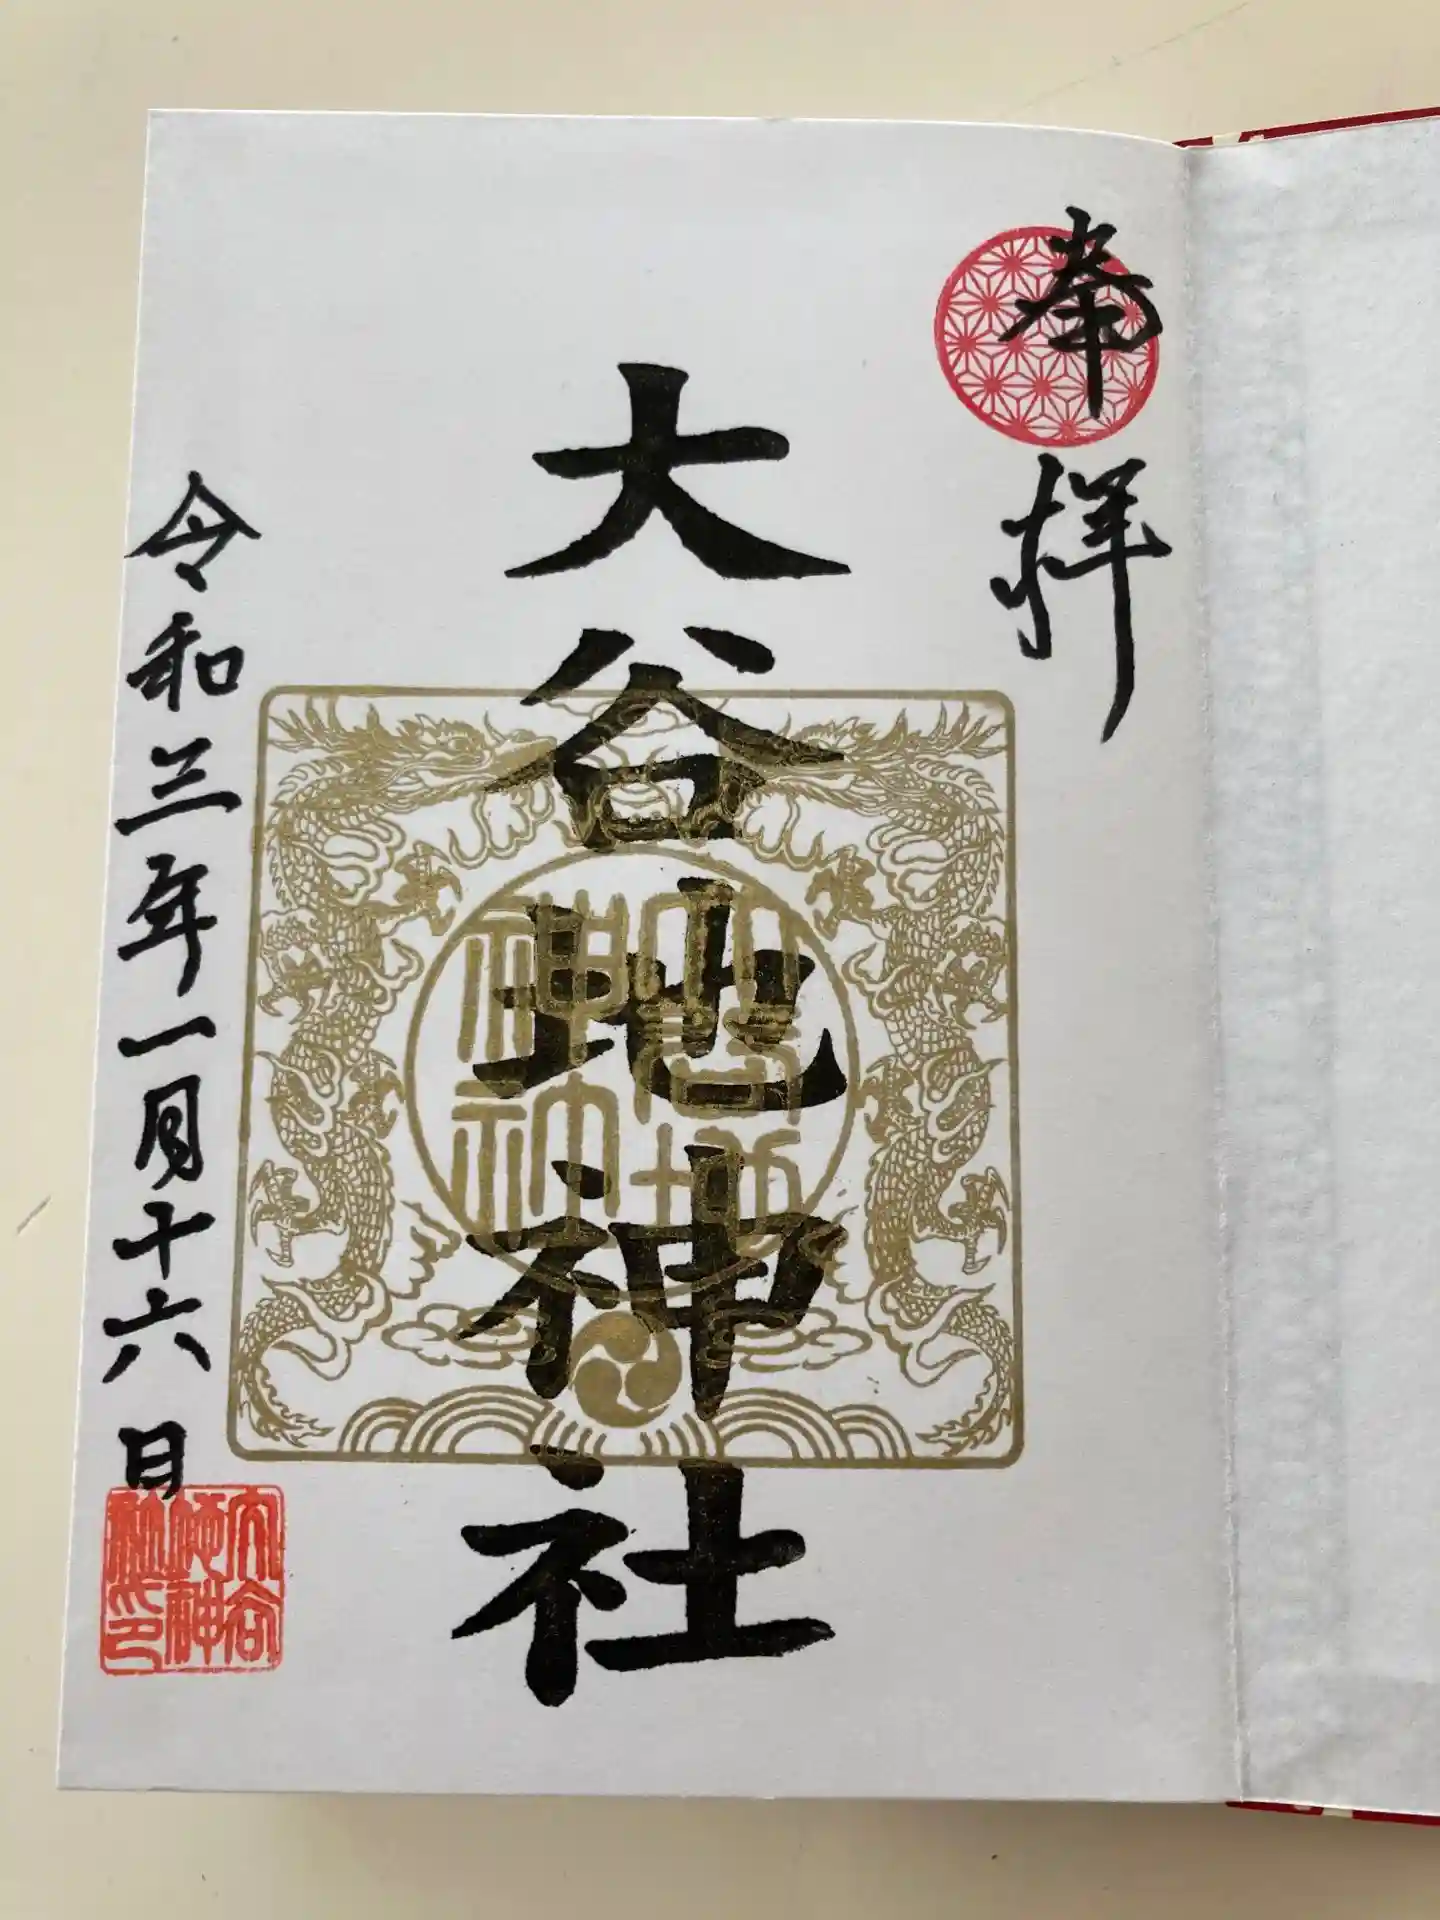 奉拝
大谷地神社
大谷地神社
令和三年一月十六日
大谷地神社印